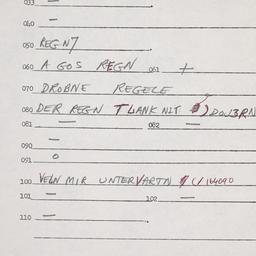 033 —
040 —
050 REGN7
060 A GOS REGN 061 +
070 DROBNE REGELE
080 DER REGN TLANK NLT DOU3RN
081 — 082 —
090 —
091 o
100 VELN MIR UNTERVARTN (/164090
101 — 102 —
110 —